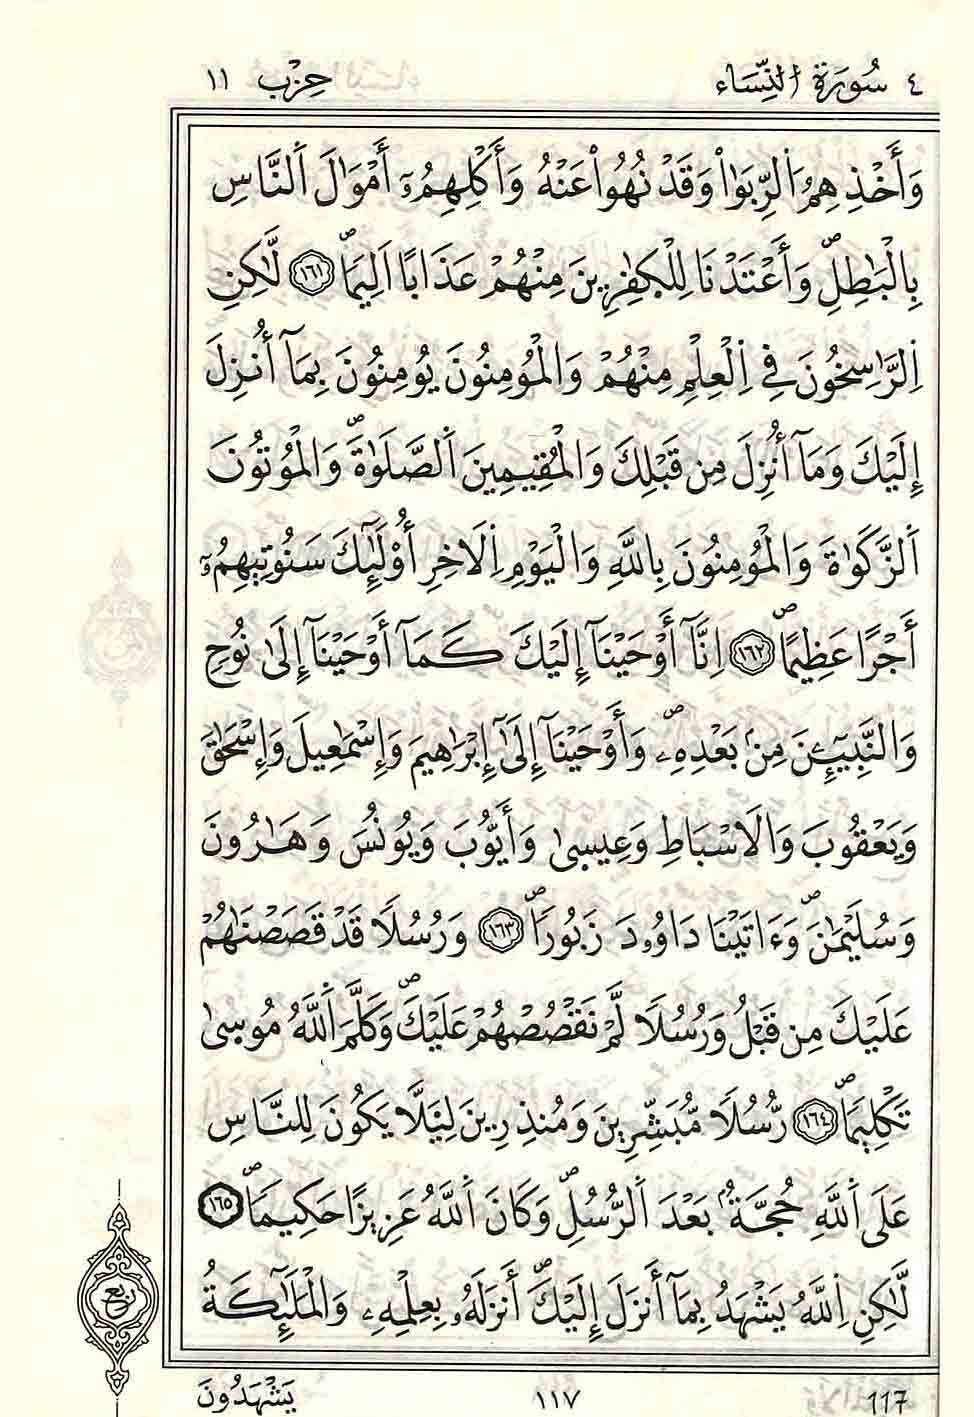 ٤ سُورَةُ اُ۬لنِّسَاءِ حِزْب ١١
وَأَخْذِهِمُ اُ۬لرِّبَوٰاْ وَقَدْ نُهُواْ عَنْهُ وَأَكْلِهِمُۥٓ أَمْوَٰلَ اَ۬لنَّاسِ
بِالْبَٰطِلِۖ وَأَعْتَدْنَا لِلْكٰ۪فِرِينَ مِنْهُمْ عَذَاباً اَلِيماٗۖ ١٦١ لَّٰكِنِ
اِ۬لرَّٰسِخُونَ فِي اِ۬لْعِلْمِ مِنْهُمْ وَالْمُومِنُونَ يُومِنُونَ بِمَآ أُنزِلَ
إِلَيْكَ وَمَآ أُنزِلَ مِن قَبْلِكَ وَالْمُقِيمِينَ اَ۬لصَّلَوٰةَۖ وَالْمُوتُونَ
اَ۬لزَّكَوٰةَ وَالْمُومِنُونَ بِاللَّهِ وَالْيَوْمِ اِ۬لَاخِرِ أُوْلَٰٓئِكَ سَنُوتِيهِمُۥٓ
أَجْراً عَظِيماًۖ ١٦٢ اِنَّآ أَوْحَيْنَآ إِلَيْكَ كَمَآ أَوْحَيْنَآ إِلَىٰ نُوحٖ
وَالنَّبِيٓـِٕۧنَ مِنۢ بَعْدِهِۦۖ وَأَوْحَيْنَآ إِلَىٰٓ إِبْرَٰهِيمَ وَإِسْمَٰعِيلَ وَإِسْحَٰقَ
وَيَعْقُوبَ وَالَاسْبَاطِ وَعِيس۪ىٰ وَأَيُّوبَ وَيُونُسَ وَهَٰرُونَ
وَسُلَيْمَٰنَۖ وَءَاتَيْنَا دَاوُۥدَ زَبُوراٗۖ ١٦٣ وَرُسُلاٗ قَدْ قَصَصْنَٰهُمْ
عَلَيْكَ مِن قَبْلُ وَرُسُلاٗ لَّمْ نَقْصُصْهُمْ عَلَيْكَۖ وَكَلَّمَ اَ۬للَّهُ مُوس۪ىٰ
تَكْلِيماٗۖ ١٦٤ رُّسُلاٗ مُّبَشِّرِينَ وَمُنذِرِينَ لِئَلَّا يَكُونَ لِلنَّاسِ
عَلَى اَ۬للَّهِ حُجَّةُۢ بَعْدَ اَ۬لرُّسُلِۖ وَكَانَ اَ۬للَّهُ عَزِيزاً حَكِيماٗۖ ١٦٥
لَّٰكِنِ اِ۬للَّهُ يَشْهَدُ بِمَآ أَنزَلَ إِلَيْكَۖ أَنزَلَهُۥ بِعِلْمِهِۦ وَالْمَلَٰٓئِكَةُ
ربع
يَشْهَدُونَ ١١٧ 117